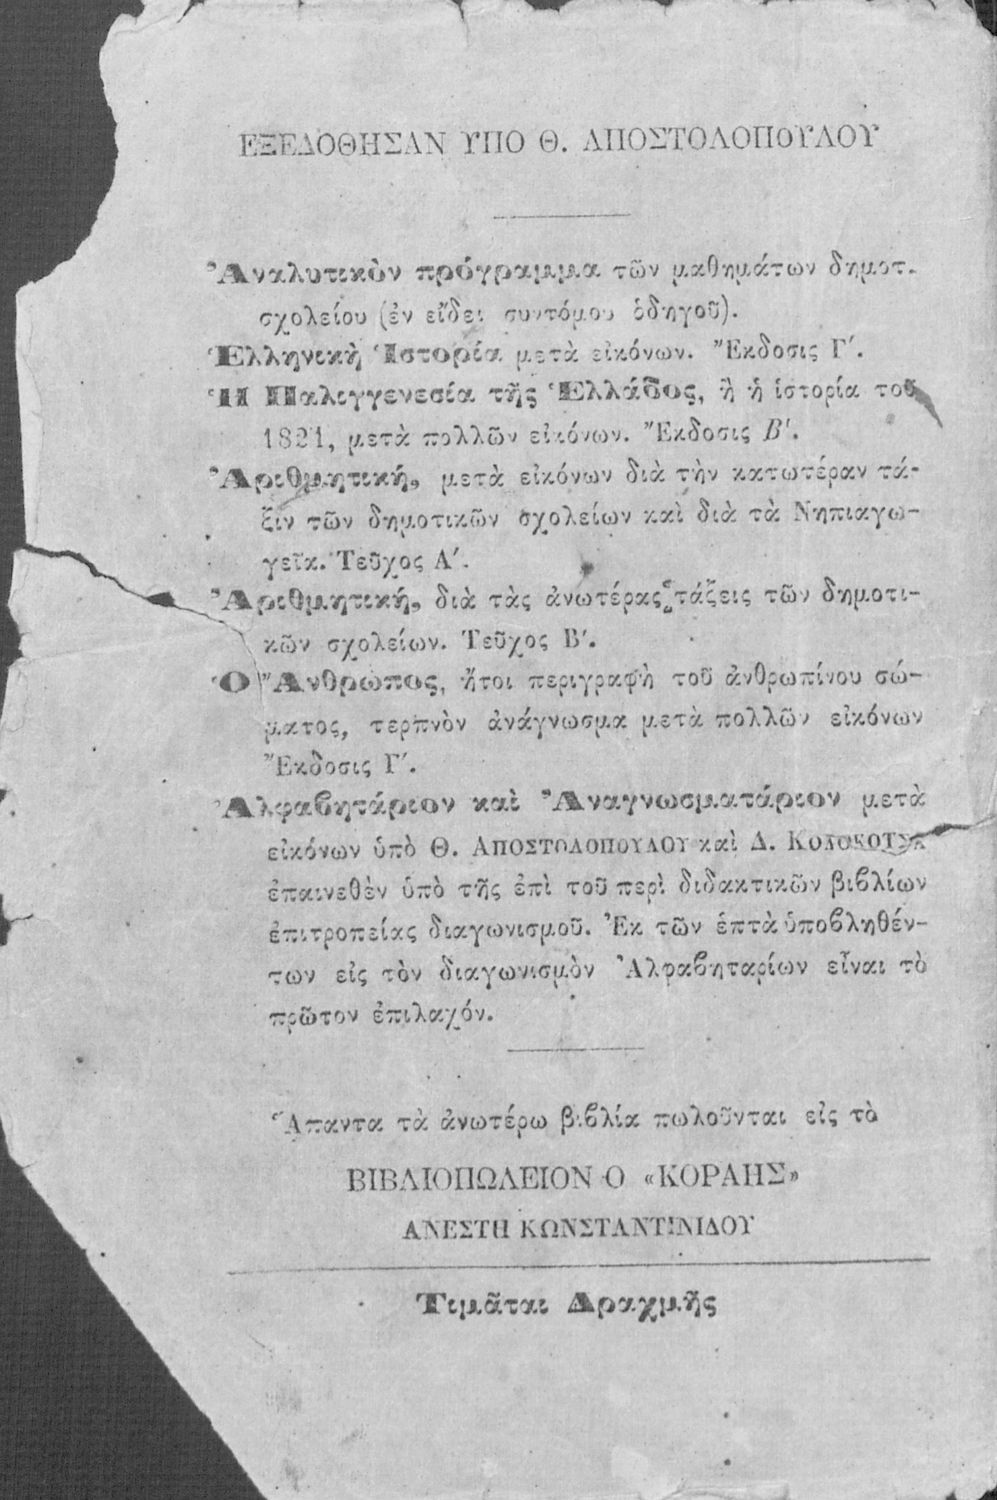 ΕΞΕΔΟΘΗΣΑΝ ΥΠΟ Θ. ΑΠΟΣΤΟΛΟΠΟΥΛΟΥ
Ἀναλυτικὸν πρόγραμμα τῶν μαθημάτων δημοτ.
σχολείου (ἐν εἴδει συντόμου ὁδηγοῦ).
Ἑλληνικὴ Ἱστορία μετὰ εἰκόνων. Ἔκδοσις Γ′.
Ἡ Παλιγγενεσία τῆς Ἑλλάδος, ἢ ἡ ἱστορία τοῦ
1821, μετὰ πολλῶν εἰκόνων. Ἔκδοσις Β′.
Ἀριθμητική, μετὰ εἰκόνων διὰ τὴν κατωτέραν τά-
ξιν τῶν δημοτικῶν σχολείων καὶ διὰ τὰ Νηπιαγω-
γεῖα. Τεῦχος Α′.
Ἀριθμητική, διὰ τὰς ἀνωτέρας τάξεις τῶν δημοτι-
κῶν σχολείων. Τεῦχος Β′.
Ὁ Ἄνθρωπος, ἤτοι περιγραφὴ τοῦ ἀνθρωπίνου σώ-
ματος, τερπνὸν ἀνάγνωσμα μετὰ πολλῶν εἰκόνων
Ἔκδοσις Γ′.
Ἀλφαβητάριον καὶ Ἀναγνωσματάριον μετὰ
εἰκόνων ὑπὸ Θ. ΑΠΟΣΤΟΛΟΠΟΥΛΟΥ καὶ Δ. ΚΟΛΟΚΟΤΣΑ
ἐπαινεθὲν ὑπὸ τῆς ἐπὶ τοῦ περὶ διδακτικῶν βιβλίων
ἐπιτροπείας διαγωνισμοῦ. Ἐκ τῶν ἑπτὰ ὑποβληθέν-
των εἰς τὸν διαγωνισμὸν Ἀλφαβηταρίων εἶναι τὸ
πρῶτον ἐπιλαχόν.
Ἅπαντα τὰ ἀνωτέρω βιβλία πωλοῦνται εἰς τὸ
ΒΙΒΛΙΟΠΩΛΕΙΟΝ Ο «ΚΟΡΑΗΣ»
ΑΝΕΣΤΗ ΚΩΝΣΤΑΝΤΙΝΙΔΟΥ
Τιμᾶται Δραχμῆς